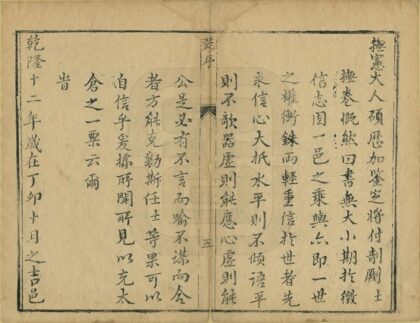 撫憲大人碩歷加鉴定將付剞劂士
撫卷慨然曰書無大小期於徵
信志固一邑之乘輿亦即一世
之權衡銖兩輕重信於世者先
求信心大抵水平則不傾語平
則不欹器虛則能應心虛則能
序
五
公是必有不言而喻不謀而合
者方能克勷斯任士等果可以
自信乎爰據所聞所見以充太
倉之一粟云爾
旹
乾隆十二年歲在丁卯十月之吉邑